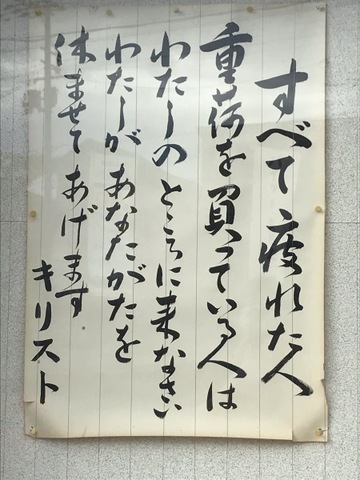 すべて疲れた人
重荷を買っている人は
わたしのところに来なさい
わたしがあなたがたを
休ませてあげます。
キリスト